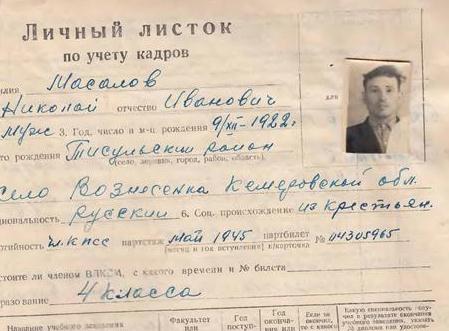 Личный листок
по учету кадров
илия Масалов
Николай отчество Иванович
муж 3. Год, число и м-ц рождения 9/XII-1922г.
то рождения Тисульский район
(село, деревня, город, район, область).
село Вознесенка Кемеровской обл.
циональность русский 6. Соц. происхождение из крестьян.
ртийность чл. КПСС партстаж май 1945 партбилет № 04305965
(месяц и год вступления) к/карточка
стоите ли членом ВЛКСМ, с какого времени и № билета
разование 4 класса
Название учебного заведения Факультет или Год поступ- Год окончания или Если не окончил, то с какого Какую специальность получил в результате окончания учебного заведения, указать